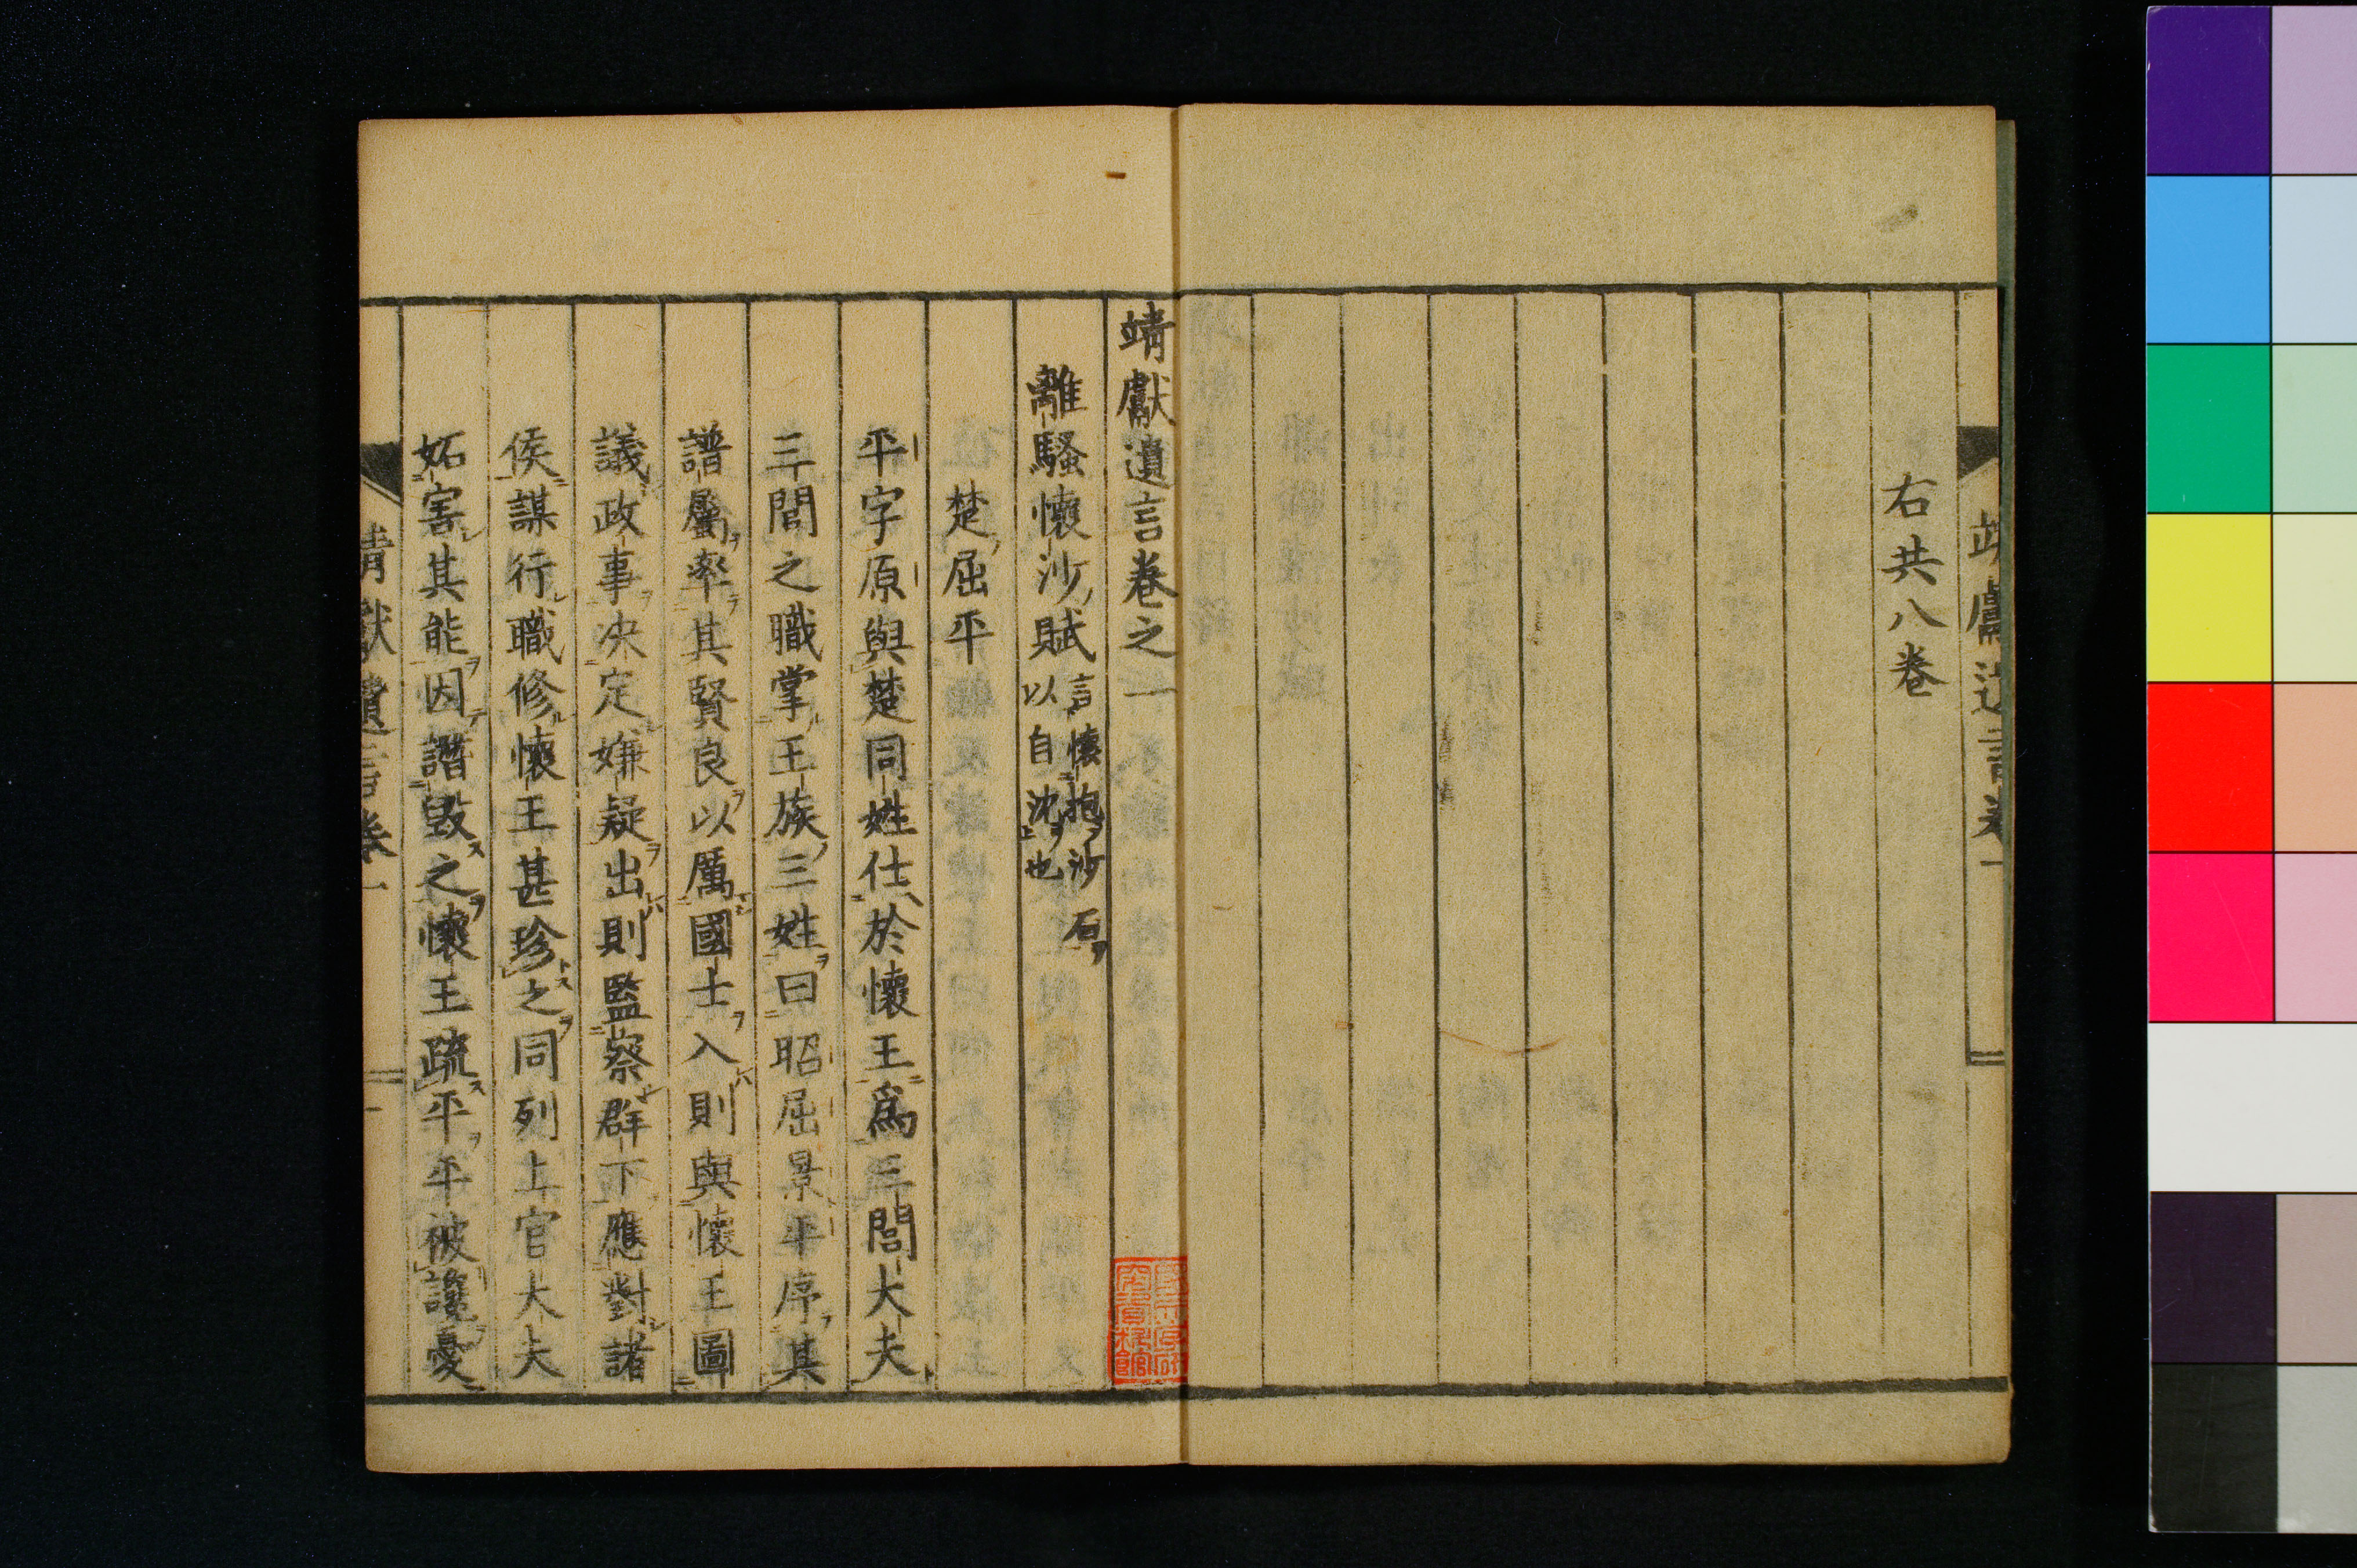 右共八卷
靖獻遺言卷之一
離騷懷沙賦 言懷抱沙石
以自沈也
楚屈平
平字原與楚同姓仕於懷王爲三閭大夫
三閭之職掌王族三姓曰昭屈景平序其
譜屬率其賢良以厲國士入則與懷王圖
議政事决定嫌疑出則監察群下應對諸
侯謀行職修懷王甚珍之同列上官大夫
妬害其能因譖毀之懷王疏平平被讒憂